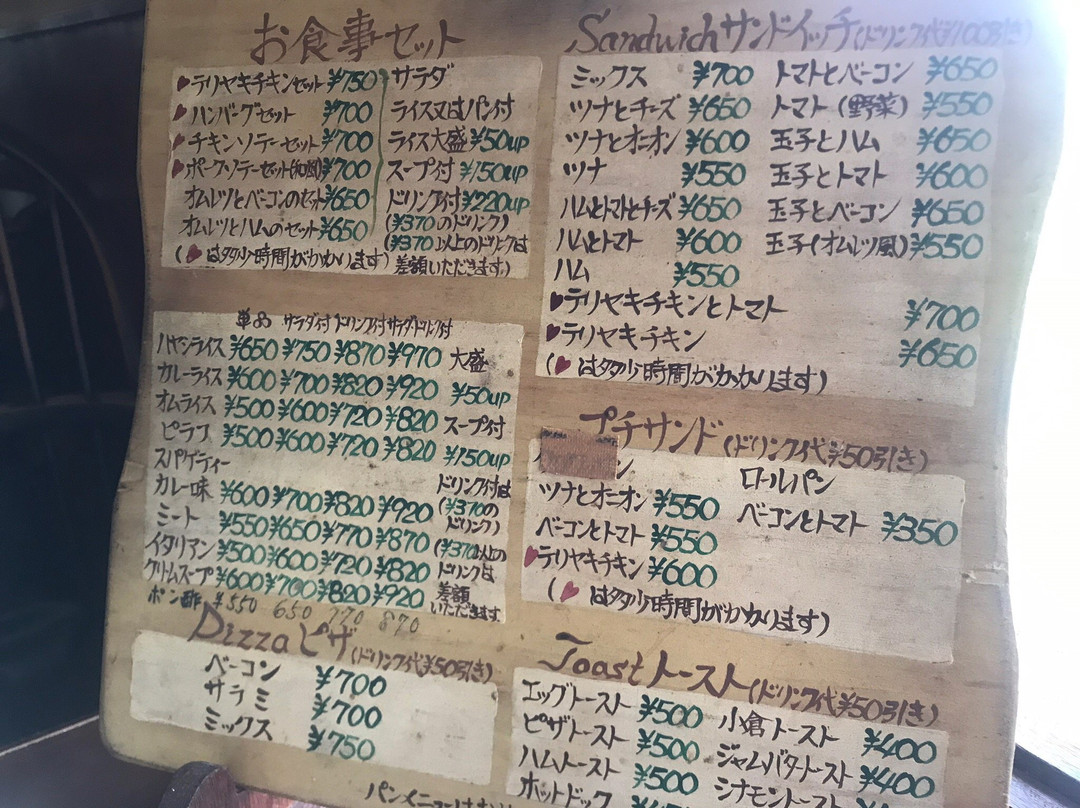 お食事セット
♥テリヤキチキンセット ¥750
♥ハンバーグセット ¥700
♥チキンソテーセット ¥700
♥ポークソテーセット(和風) ¥700
オムレツとベーコンのセット ¥650
オムレツとハムのセット ¥650
(♥は多少時間がかかります)
サラダ
ライス又はパン付
ライス大盛 ¥50up
スープ付 ¥150up
ドリンク付 ¥220up
(¥370のドリンク)
(¥370以上のドリンクは
差額いただきます。)
単品 サラダ付 ドリンク付 サラダ・ドリンク付
ハヤシライス ¥650 ¥750 ¥870 ¥970
カレーライス ¥600 ¥700 ¥820 ¥920
オムライス ¥500 ¥600 ¥720 ¥820
ピラフ ¥500 ¥600 ¥720 ¥820
スパゲティー
カレー味 ¥600 ¥700 ¥820 ¥920
ミート ¥550 ¥650 ¥770 ¥870
イタリアン ¥500 ¥600 ¥720 ¥820
クリームスープ ¥600 ¥700 ¥820 ¥920
ポン酢 ¥550 650 770 870
大盛
¥50up
スープ付
¥150up
ドリンク付は
(¥370の
ドリンク)
(¥370以上の
ドリンクは
差額
いただきます。
Pizza ピザ (ドリンク代¥50引き)
ベーコン ¥700
サラミ ¥700
ミックス ¥750
パンメニューは
Sandwich サンドイッチ (ドリンク代¥100引き)
ミックス ¥700
ツナとチーズ ¥650
ツナとオニオン ¥600
ツナ ¥550
ハムとトマトとチーズ ¥650
ハムとトマト ¥600
ハム ¥550
♥テリヤキチキンとトマト ¥700
♥テリヤキチキン ¥650
(♥は多少時間がかかります)
トマトとベーコン ¥650
トマト(野菜) ¥550
玉子とハム ¥650
玉子とトマト ¥600
玉子とベーコン ¥650
玉子(オムレツ風) ¥550
プチサンド (ドリンク代¥50引き)
ツナとオニオン ¥550
ベーコンとトマト ¥550
♥テリヤキチキン ¥600
(♥は多少時間がかかります)
ロールパン
ベーコンとトマト ¥350
Toast トースト (ドリンク代¥50引き)
エッグトースト ¥500
ピザトースト ¥500
ハムトースト ¥500
ホットドック
小倉トースト ¥400
ジャムバタートースト ¥400
シナモントースト